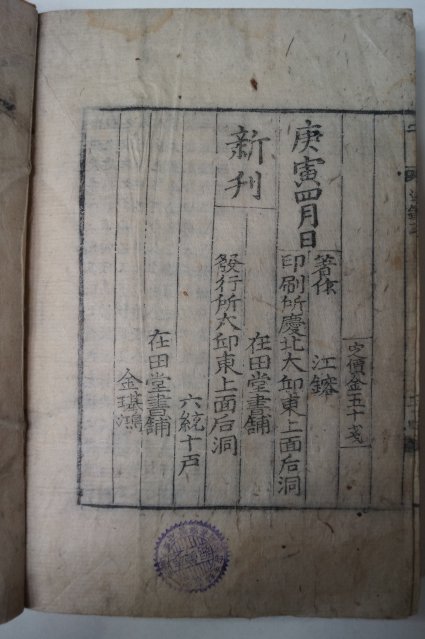 定價金五十戔
庚寅四月日
著作 江鎔
印刷所慶北大邱東上面后洞
在田堂書鋪
新刊
發行所大邱東上面后洞
六統十戶
在田堂書鋪
金璂鴻